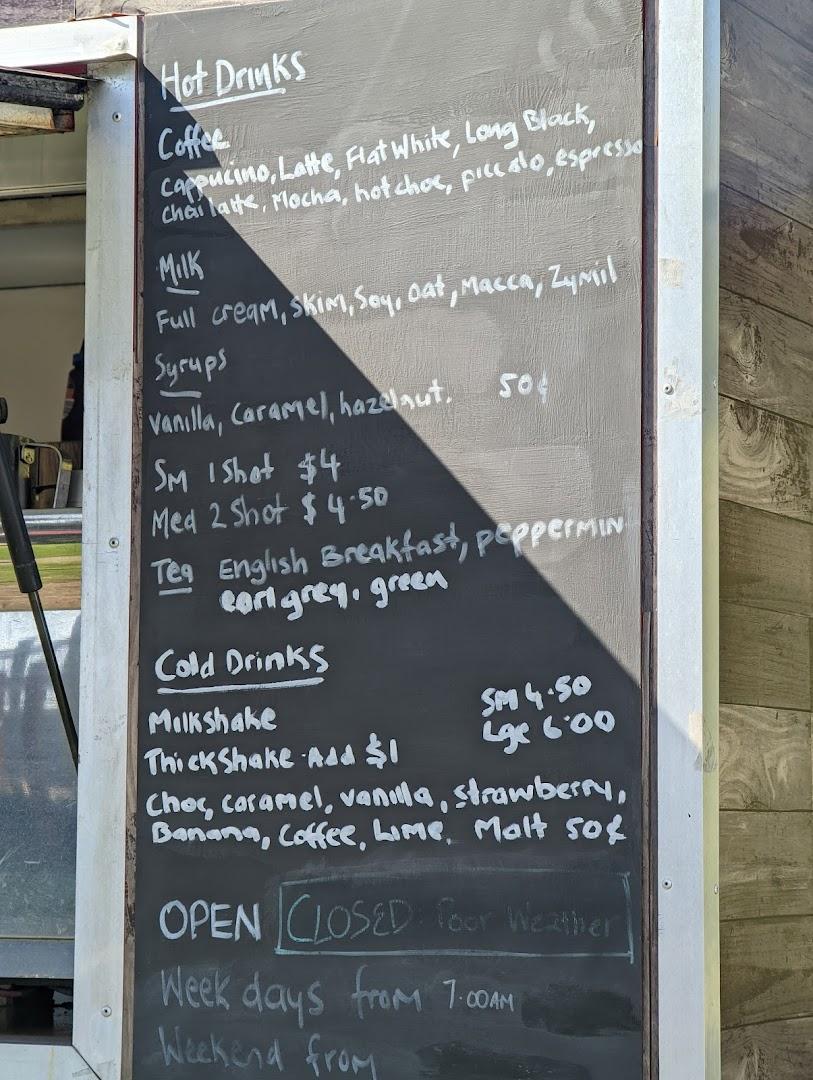 Hot Drinks
Coffee
Cappucino, Latte, Flat White, Long Black,
Chai latte, Mocha, hot choc, piccolo, espresso
Milk
Full cream, skim, Soy, oat, Macca, Zymil
Syrups
vanilla, caramel, hazelnut. 50¢
Sm 1 Shot $4
Med 2 Shot $4.50
Tea English Breakfast, peppermin
earl grey, green
Cold Drinks
Milkshake Sm 4.50
ThickShake Add $1 Lge 6.00
Choc, caramel, vanilla, strawberry,
Banana, Coffee, Lime, Malt 50¢
OPEN CLOSED: Poor Weather
Week days from 7.00AM
Weekend from